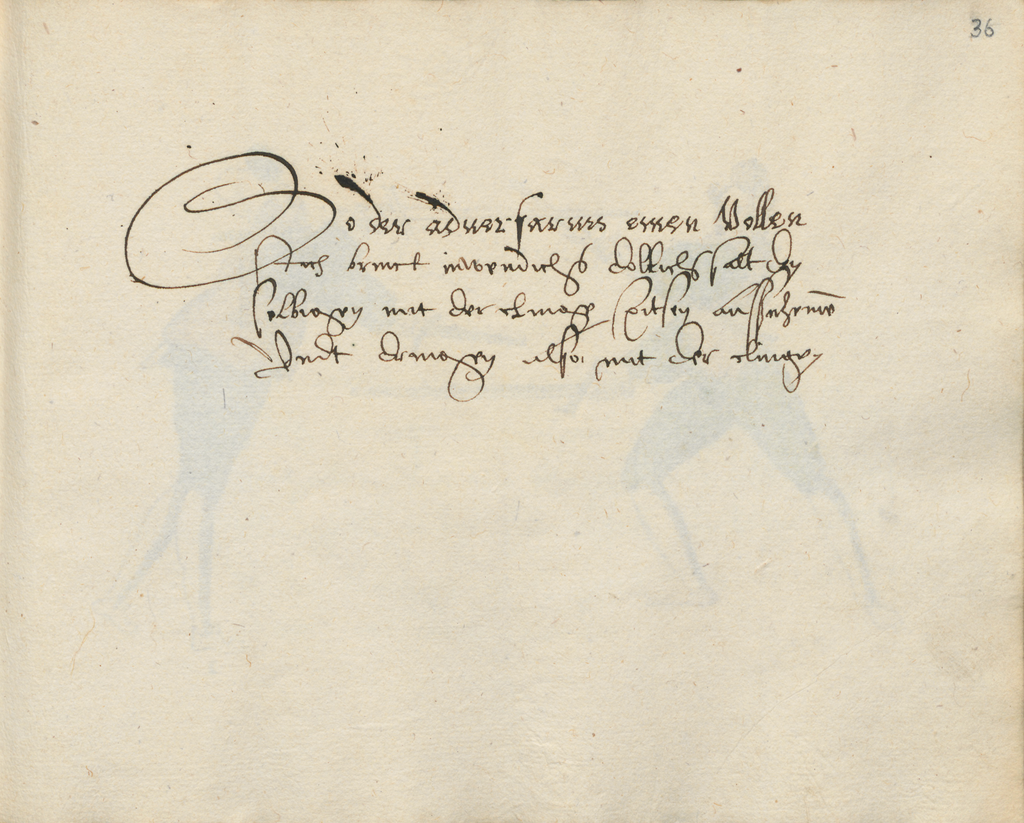 36
So der aduersarius einen Vollen
Stich brinct inwendichs dollichs salt den
selbigen mit der clingen spitsen auffnhemen
Vndt dringen also mit der clingen